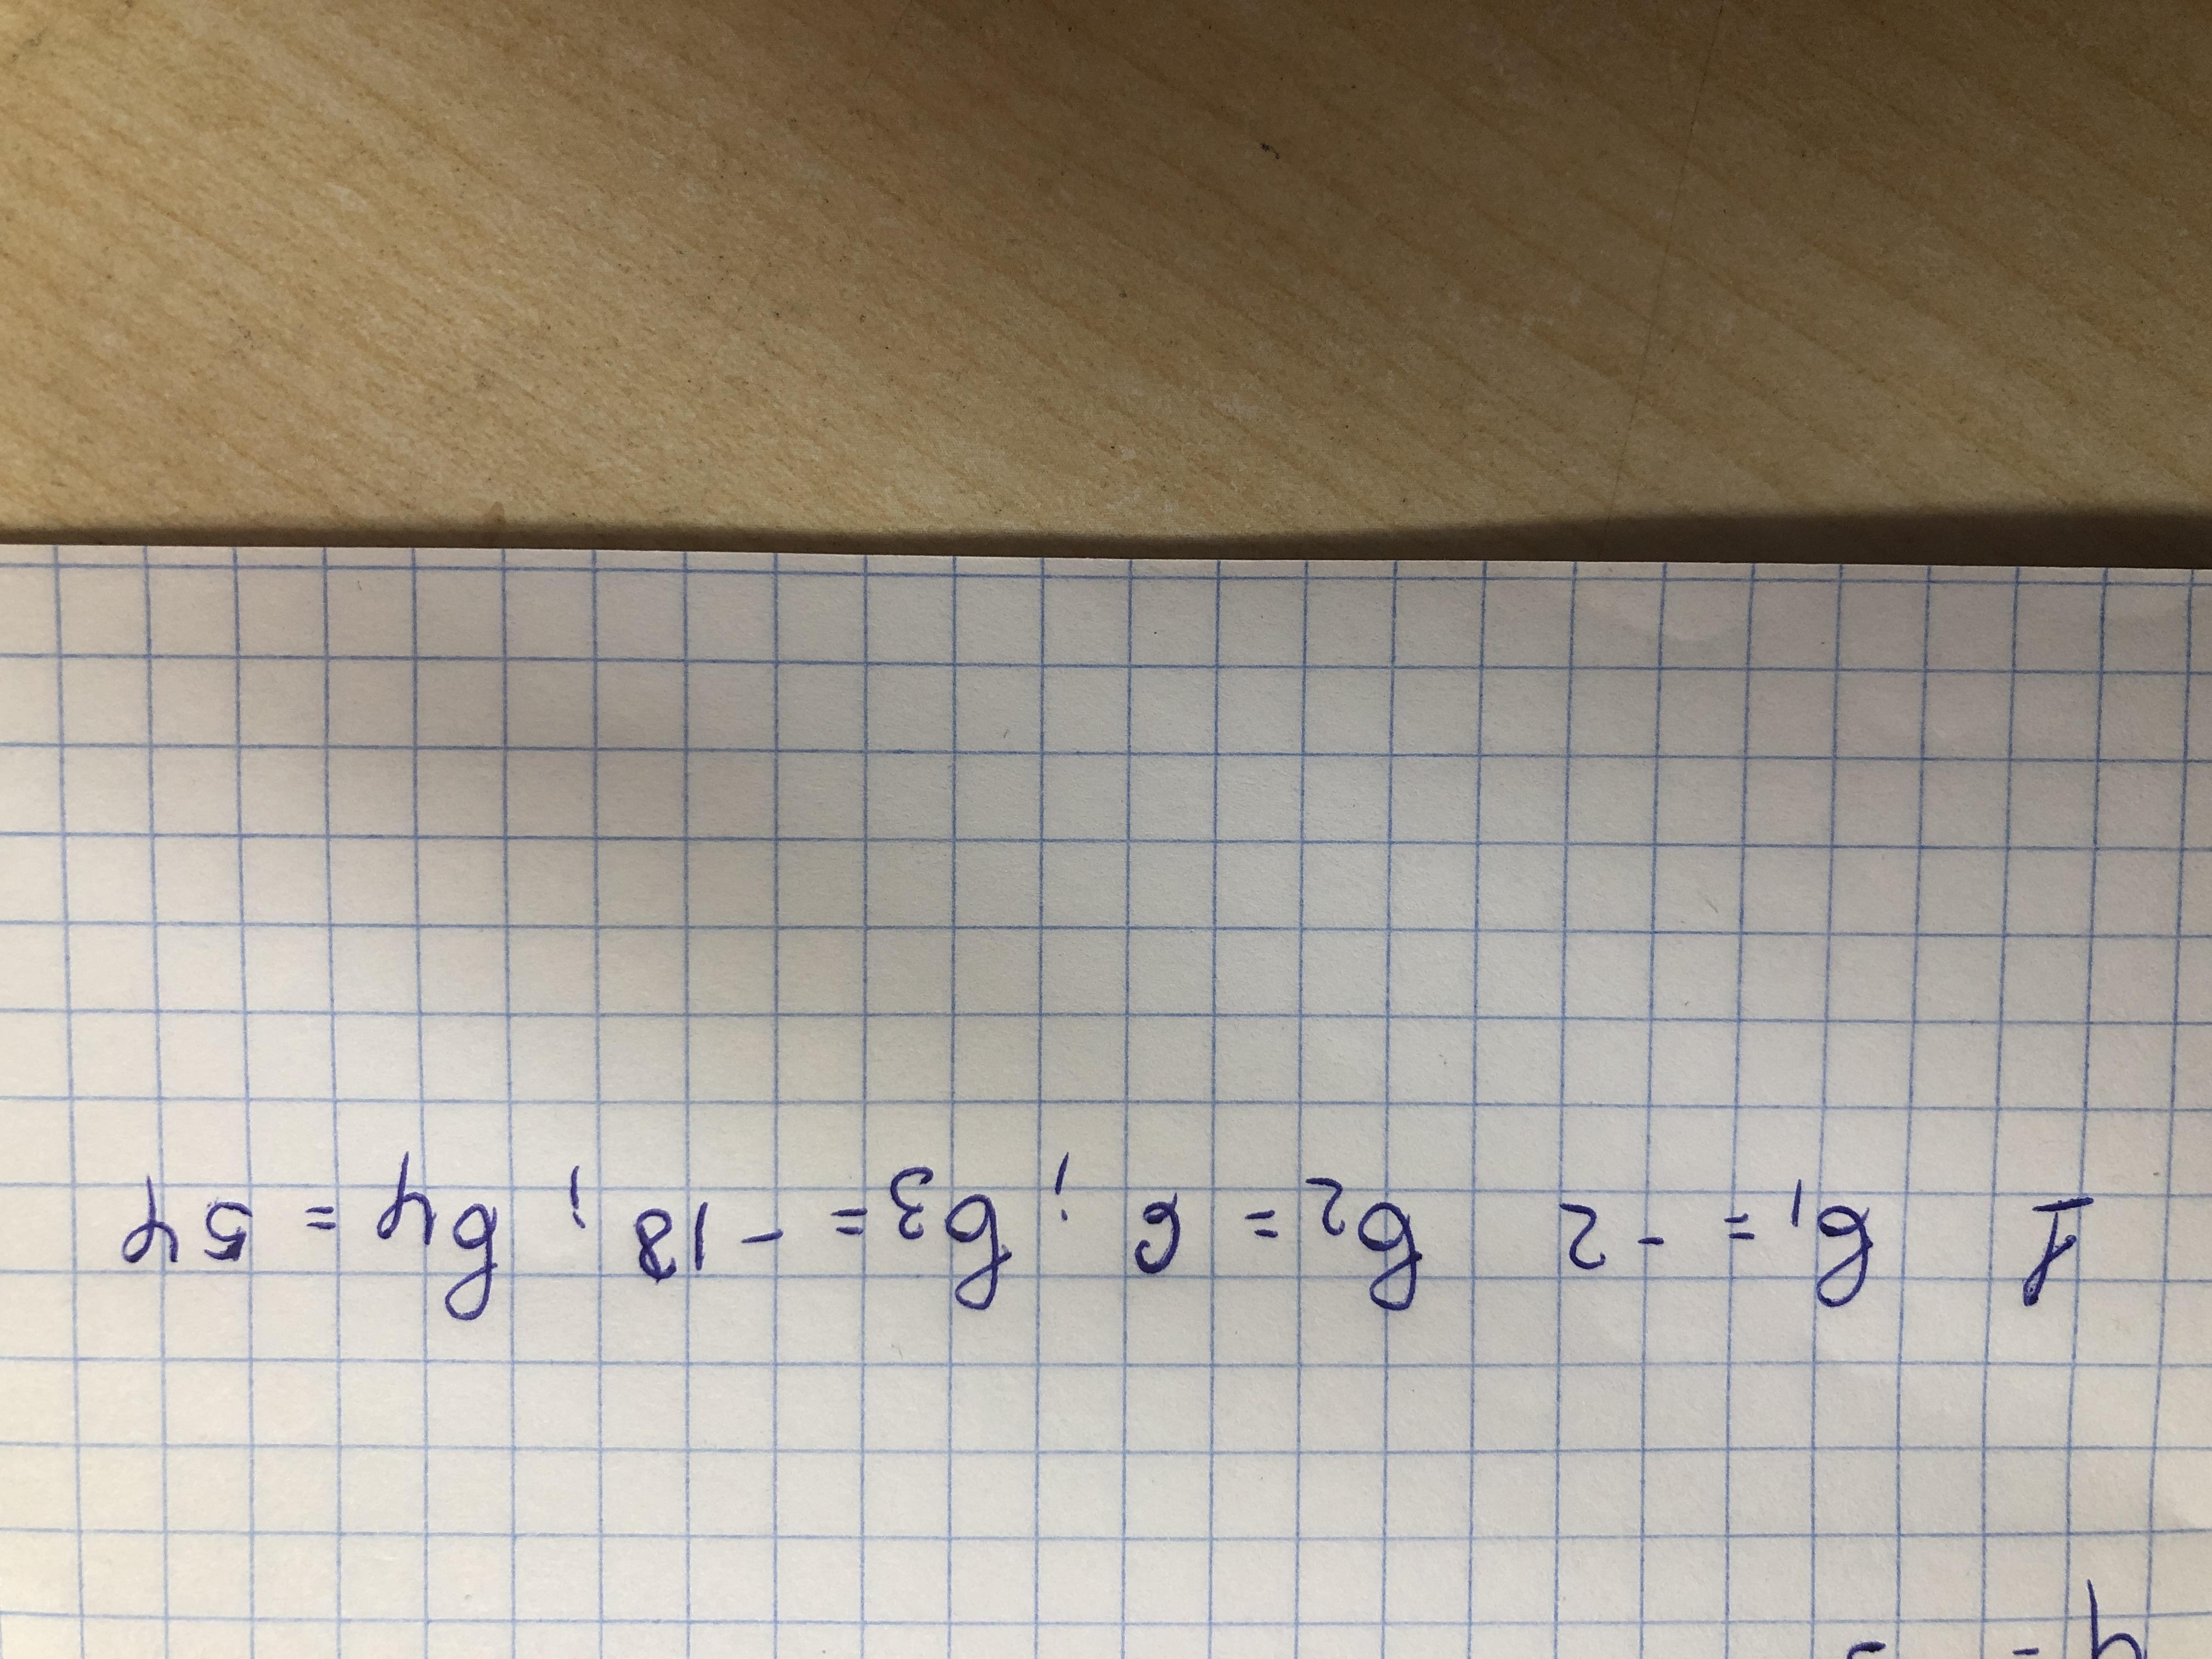 1 b₁ = -2 b₂ = 6 ; b₃ = -18 ; b₄ = 54